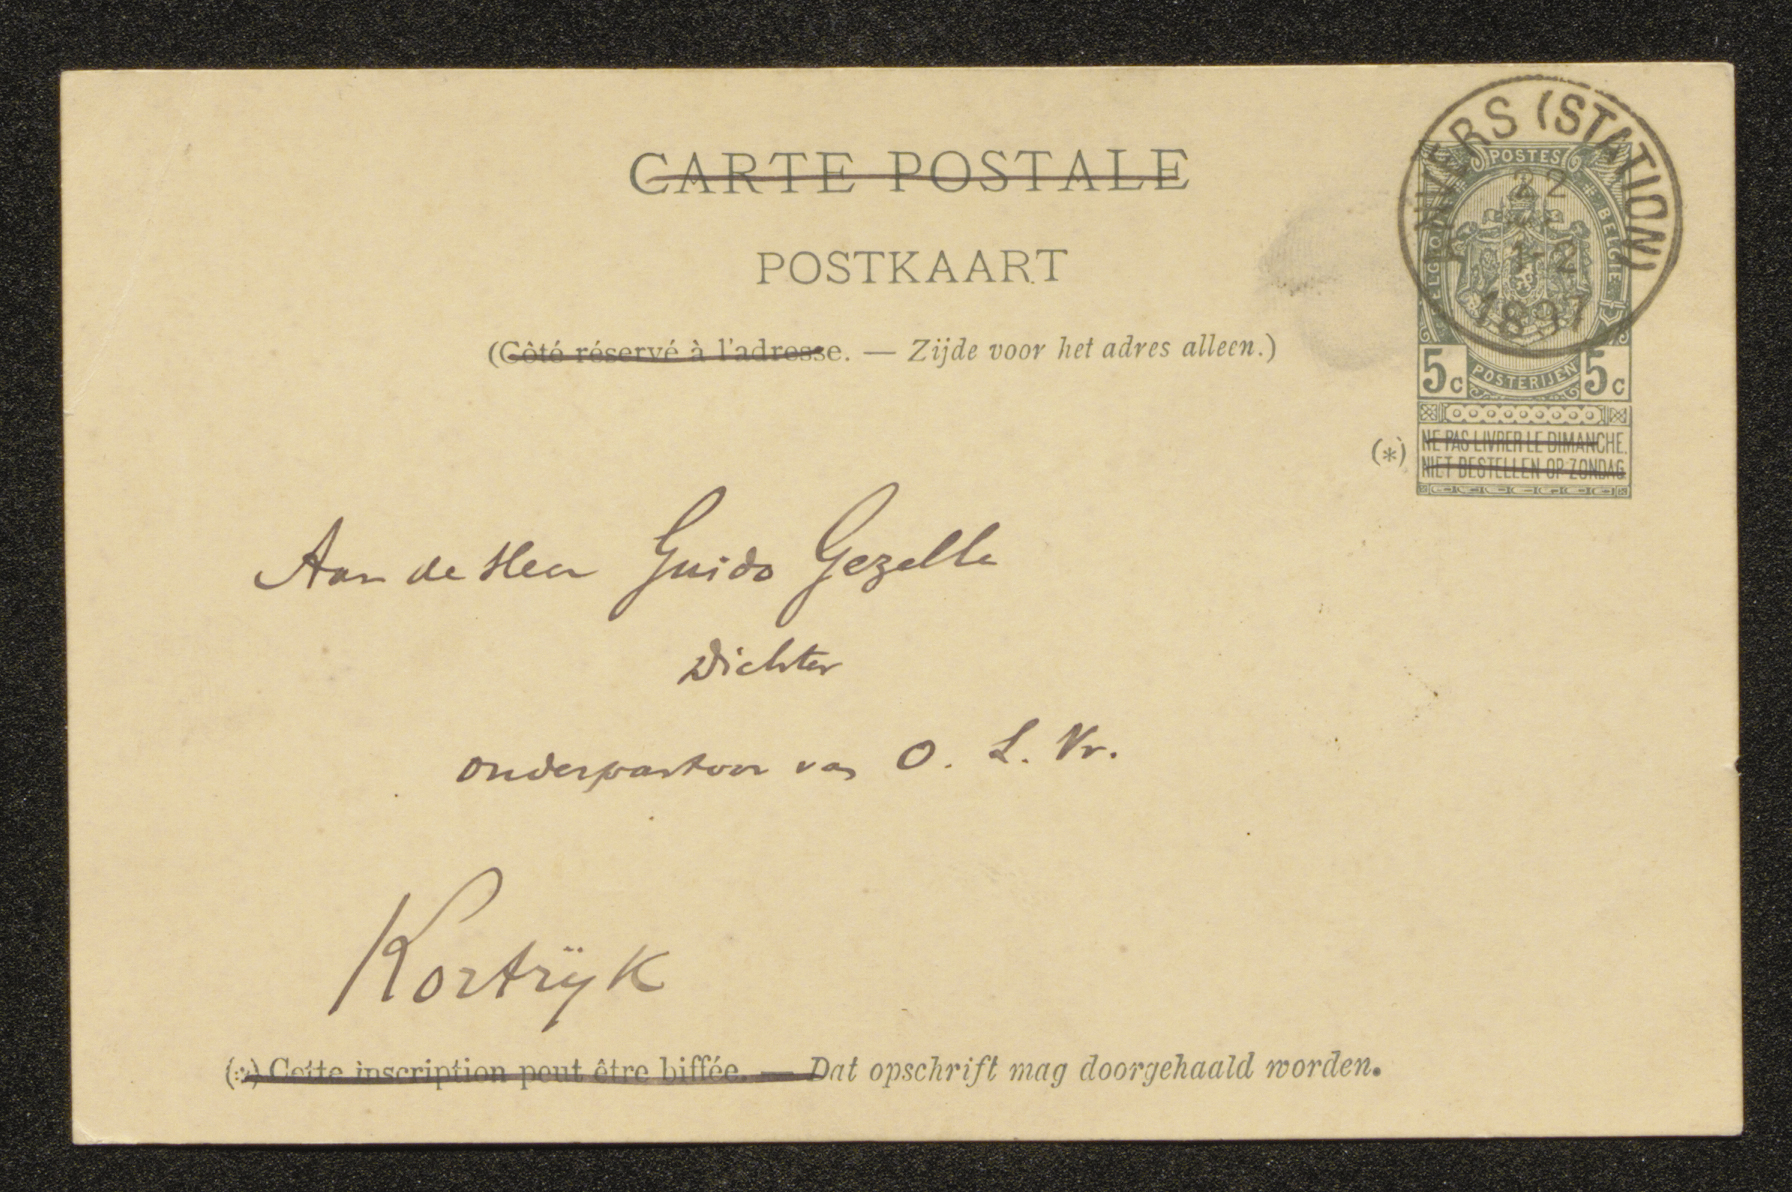 CARTE POSTALE
POSTKAART
(Côté réservé à l'adresse. — Zijde voor het adres alleen.)
ANVERS (STATION)
22
1-2
1897
POSTES
BELGIQUE
BELGIË
5c POSTERIJEN 5c
(*)
NE PAS LIVRER LE DIMANCHE.
NIET BESTELLEN OP ZONDAG
Aan de Heer Guido Gezelle
Dichter
onderpastoor van O. L. Vr.
Kortrijk
(*) Cette inscription peut être biffée. — Dat opschrift mag doorgehaald worden.